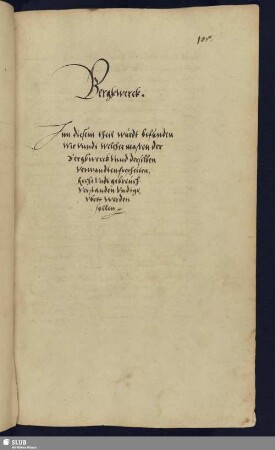 105.
Bergkwerck.
Inn diesem theil wirdt befunden
wie vnnd welcher massen der
Bergkwerck vnnd derselben
Verwandten freiheiten,
Recht vnd gebreuch
verstanden vnd ge¬
vbett werden
sollen
SLUB